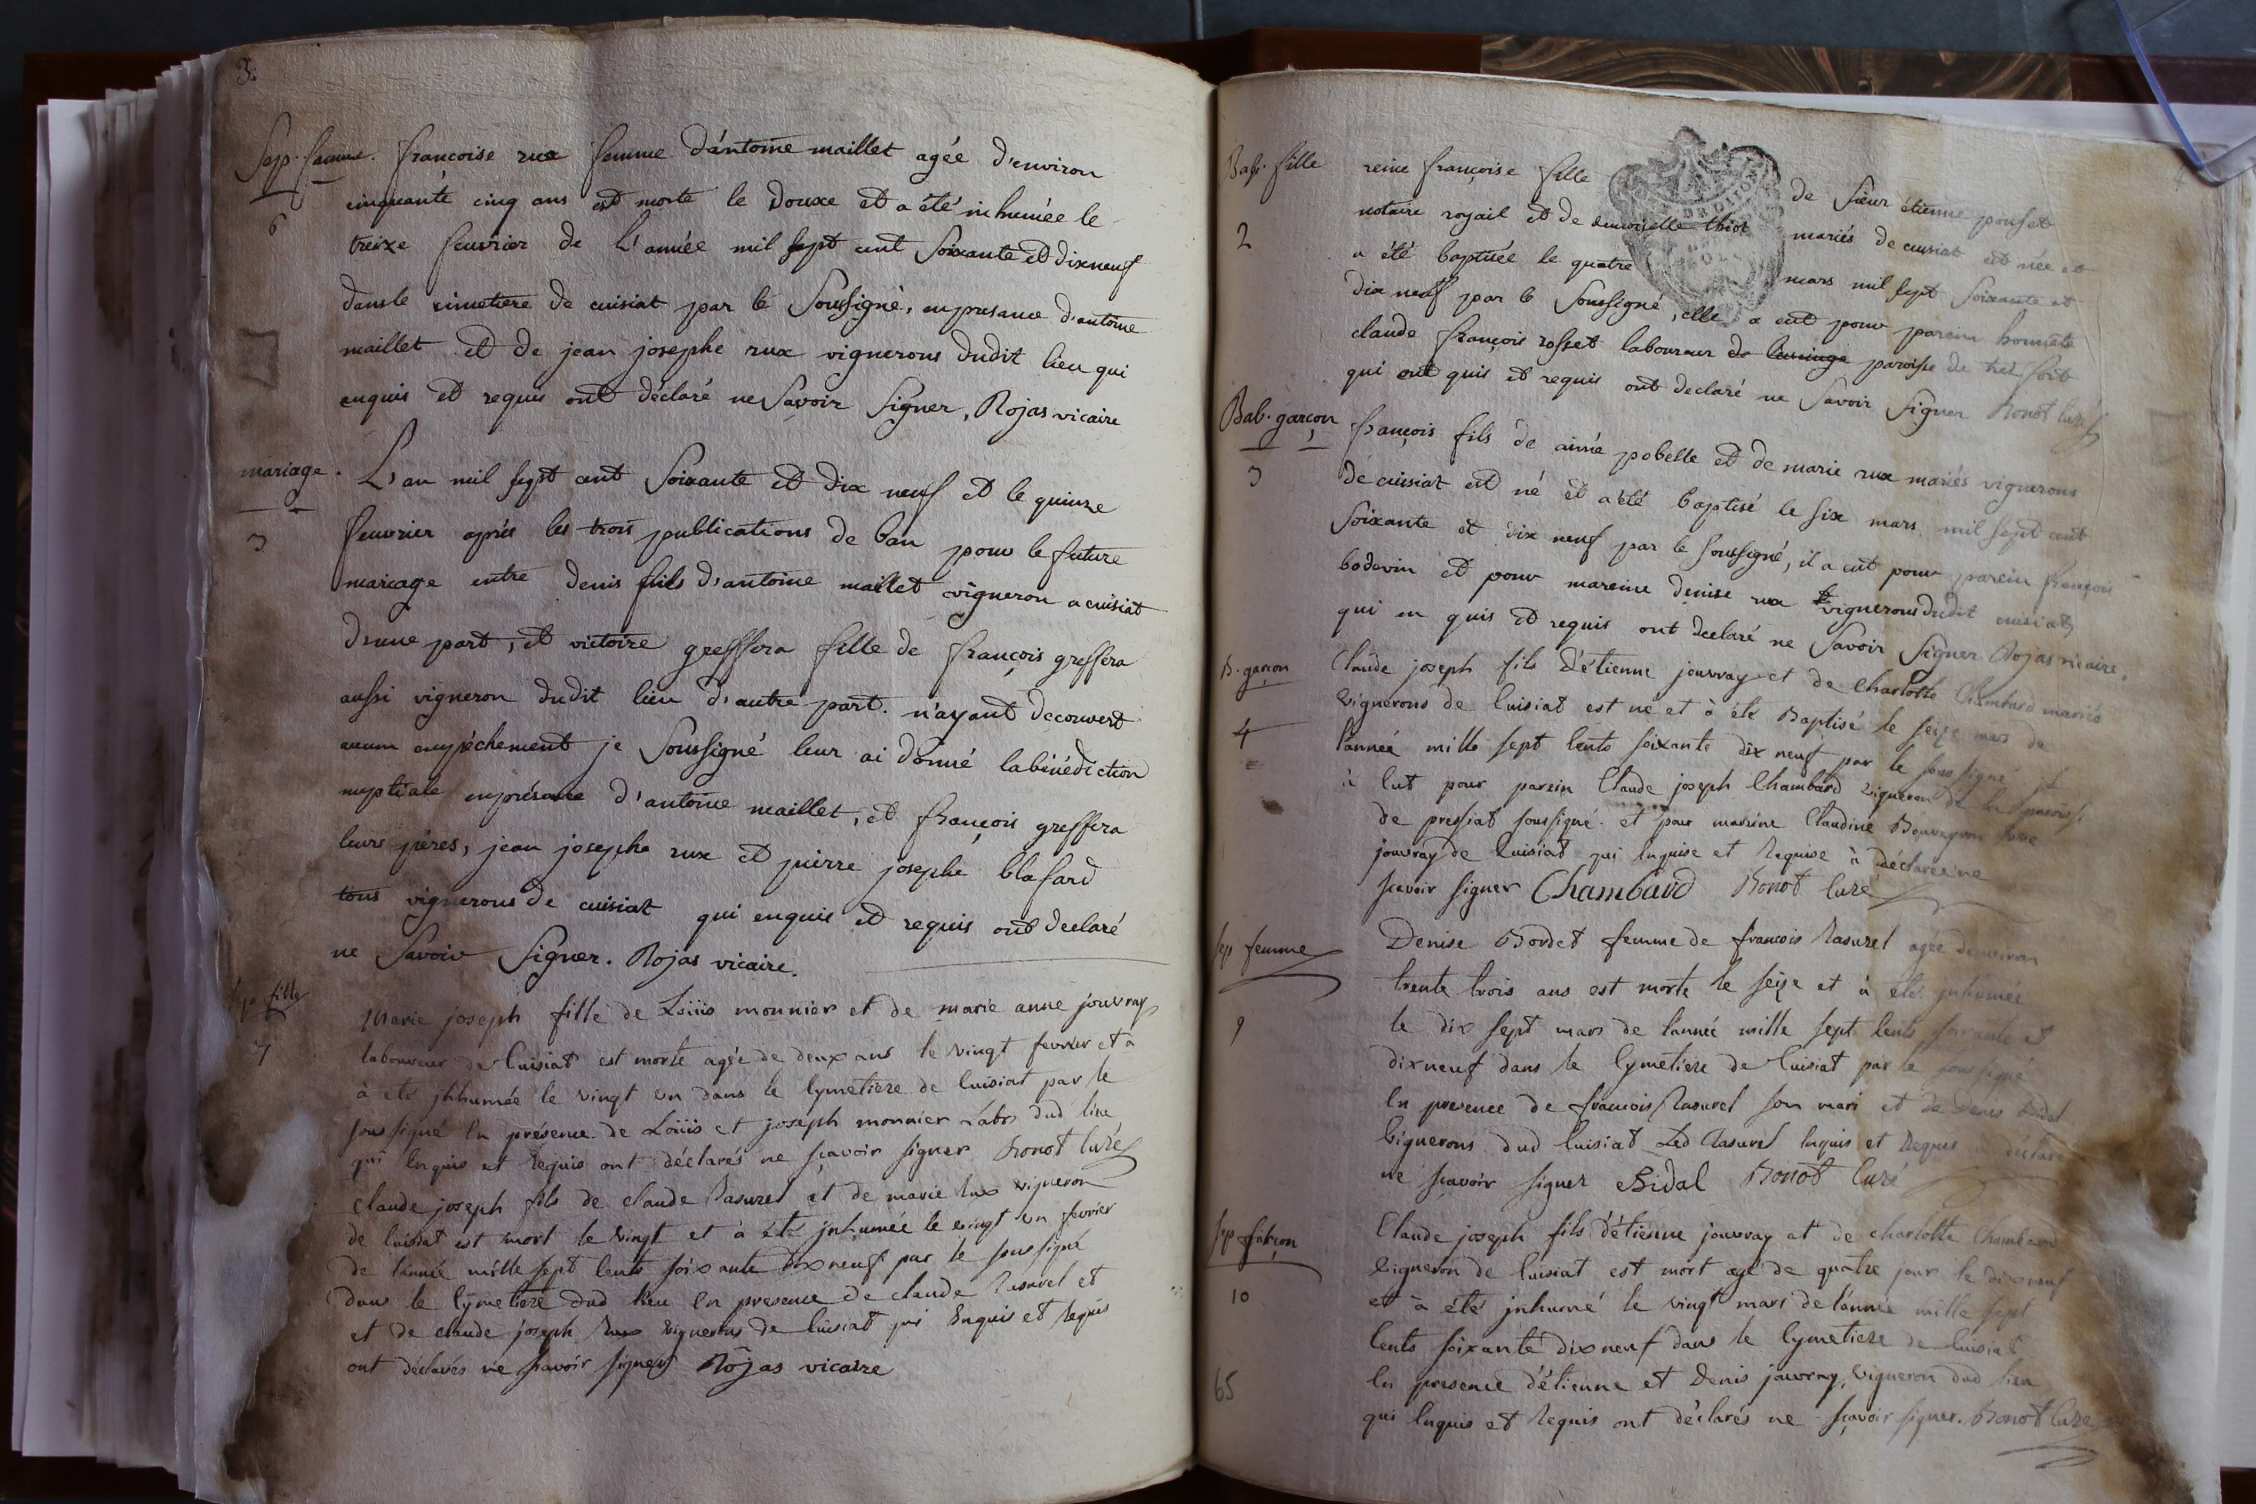 3.
Sep. femme.
6
francoise rux femme d'antoine maillet agée d'environ
cinquante cinq ans est morte le douxe et a été inhumée le
treixe feuvrier de L'année mil sept cent soixante et dixneuf
dans le cimetiere de cuisiat par le soussigné, en presance d'antoine
maillet et de jean josephe rux vignerons dudit lieu qui
enquis et requis ont déclaré ne savoir signer, Rojas vicaire
mariage.
3
L'an mil sept cent soixante et dix neuf et le quinze
feuvrier après les trois publications de ban pour le future
mariage entre denis fils d'antoine maillet vigneron a cuisiat
d'une part, et victoire greffera fille de françois greffera
aussi vigneron dudit lieu d'autre part. n'ayant decouvert
aucun empèchement je soussigné leur ai donné la bénédiction
nuptiale en présance d'antoine maillet, et françois greffera
leurs pères, jean josephe rux et pierre josephe blafard
tous vignerons de cuisiat qui enquis et requis ont declaré
ne savoir signer. Rojas vicaire.
Sep fille
7
Marie joseph fille de Loüis monnier et de marie anne jouvray
laboureur de Cuisiat est morte agée de deux ans le vingt fevrier et a
à eté jnhumée le vingt un dans le Cymetiere de Cuisiat par le
soussigné En présence de Loüis et joseph monnier Labrs dud lieu
qui Enquis et Requis ont déclarés ne sçavoir signer Bonot Curé
Claude joseph fils de claude Rasurel et de marie Rux vigneron
de Cuisiat est mort le vingt et à été jnhumée le vingt un fevrier
de l'année mille sept Cents soixante Dix neuf par le soussigné
dans le Cymetiere dud lieu En presence de claude Rasurel et
et de claude joseph Rux vignerons de Cuisiat qui Enquis et Requis
ont déclarés ne sçavoir signer Rojas vicaire
Bab. fille
2
reine françoise fille de sieur étienne ponset
notaire royail et de demoiselle thiot mariés de cuisiat est née et
a été baptisée le quatre mars mil sept soixante et
dix neuf par le soussigné, elle a eut pour parein honnete
claude françois rosset laboureur de paroisse de treffort
qui ont quis et requis ont declaré ne savoir signer Bonot Curé
Bab. garçon
3
françois fils de aimé pobelle et de marie rux mariés vignerons
de cuisiat est né et a été baptisé le six mars mil sept cent
soixante et dix neuf par le soussigné, il a eut pour parein françois
bodevin et pour mareine denise rux vignerons dudit cuisiat
qui en quis et requis ont declaré ne savoir signer Rojas vicaire.
B. garçon
4
Claude joseph fils d'étienne jouvray et de Charlotte Chambard mariés
vignerons de Cuisiat est né et à été Baptisé le seize mars de
l'année mille sept Cents soixante dix neuf par le soussigné il
à Eut pour parein Claude joseph Chambard vigneron de la paroisse
de pressiat soussigné et pour mareine Claudine
jouvray de Cuisiat qui Enquise et Requise à déclarée ne
sçavoir signer Chambard Bonot Curé
Sep femme
9
Denise Bordet femme de francois Rasurel agée denviron
trente trois ans est morte le seize et à été jnhumée
le dix sept mars de l'année mille sept Cents soixante et
dixneuf dans le Cymetiere de Cuisiat par le soussigné
En presence de francois Rasurel son mari et de Denis Bidal
vignerons dud Cuisiat Led Rasurel Enquis et Requis à declaré
ne sçavoir signer Bidal Bonot Curé
Sep garçon
10
Claude joseph fils d'étienne jouvray et de charlotte Chambard
vigneron de Cuisiat est mort agé de quatre jour le dixneuf
et à été jnhumé le vingt mars de l'année mille sept
Cents soixante dix neuf dans le Cymetiere de Cuisiat
En presence d'étienne et Denis jouvray, vigneron dud lieu
qui Enquis et Requis ont déclarés ne sçavoir signer. Bonot Curé
65